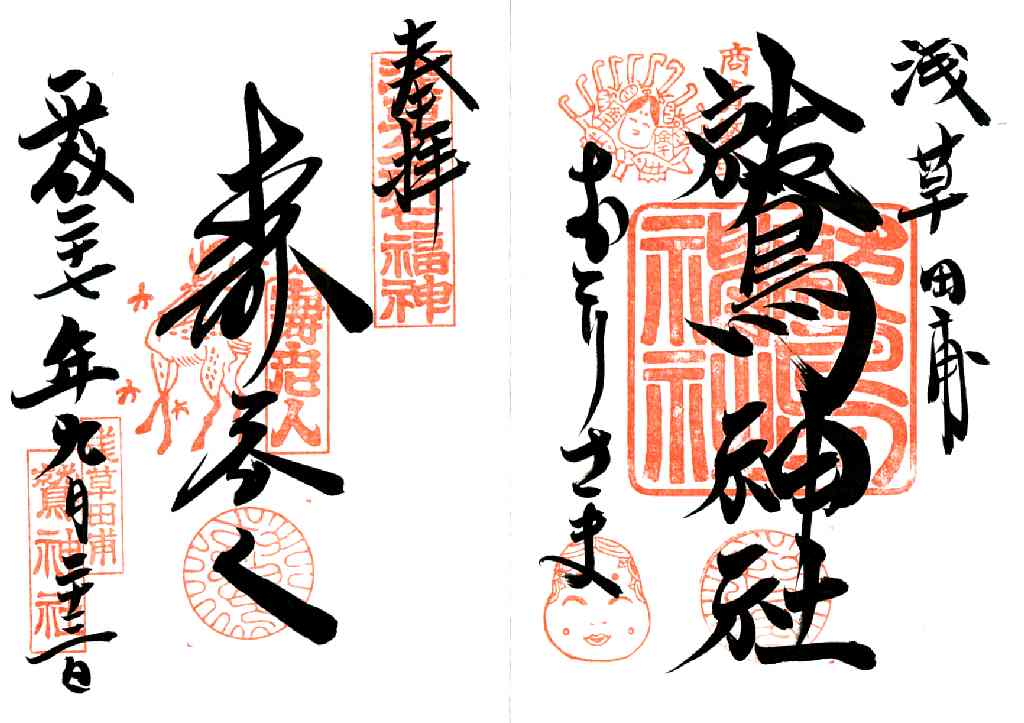 浅草田甫
鷲神社
おとりさま
奉拝
寿老人
平成二十七年九月二十二日
浅草名所七福神
寿老人
浅草田甫
鷲神社